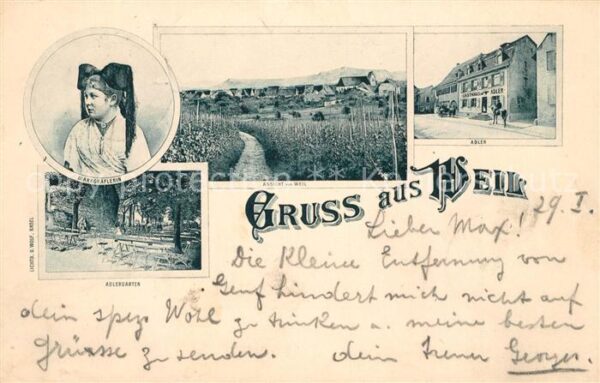 GASTHAUS zum ADLER
MARKGRÄFLERIN
ANSICHT von WEIL
ADLER
ADLERGARTEN
LICHTD. V. WOLF, BASEL
GRUSS aus WEIL
29. I.
Lieber Max!
Die Kleine Entfernung von
Genf hindert mich nicht auf
dein spez. Wohl zu trinken u. meine besten
Grüsse zu senden. dein treuer Georges.